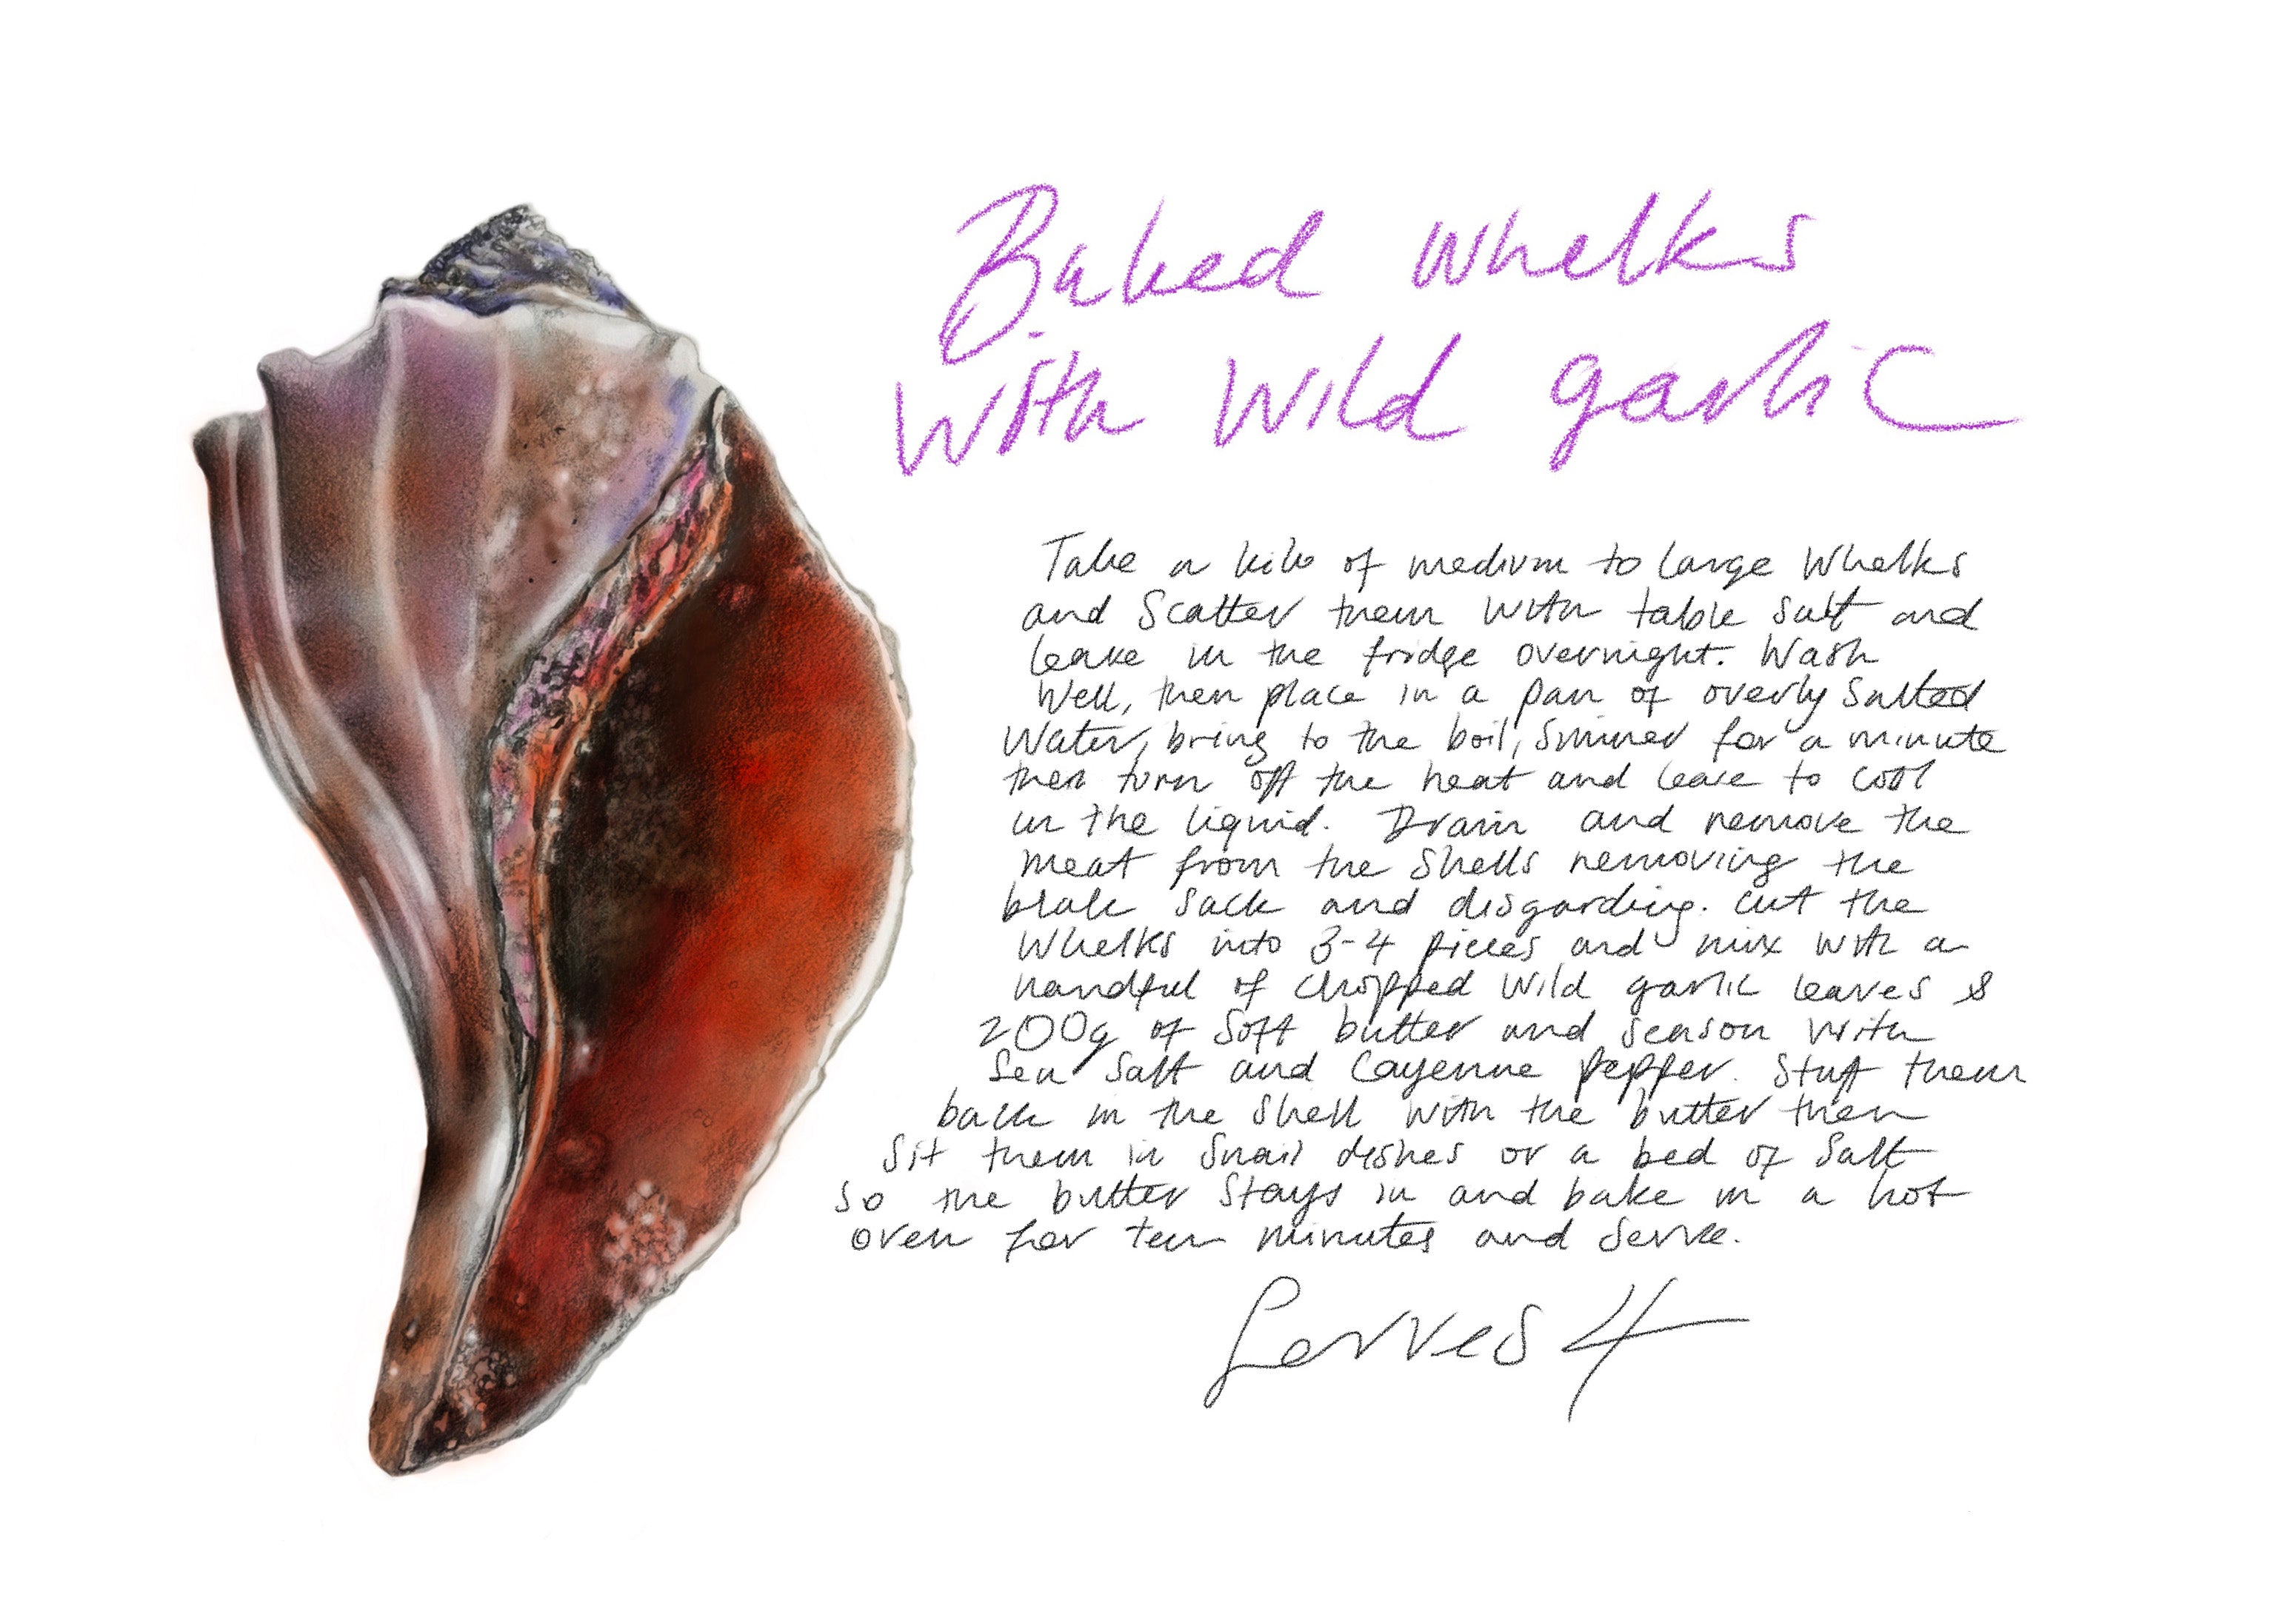 Baked Whelks
With Wild garlic
Take a kilo of medium to large Whelks
and Scatter them with table salt and
leave in the fridge overnight. Wash
Well, then place in a pan of overly Salted
Water, bring to the boil, Simmer for a minute
then turn off the heat and leave to cool
in the liquid. Drain and remove the
meat from the Shells removing the
sack and disgarding. Cut the
Whelks into 3-4 pieces and mix with a
handful of chopped Wild garlic leaves &
200g of Soft butter and season with
Sea Salt and Cayenne pepper. Stuff them
back in the shell with the butter then
Sit them in Snail dishes or a bed of Salt
So the butter Stays in and bake in a hot
oven for ten minutes and Serve.
Serves 4